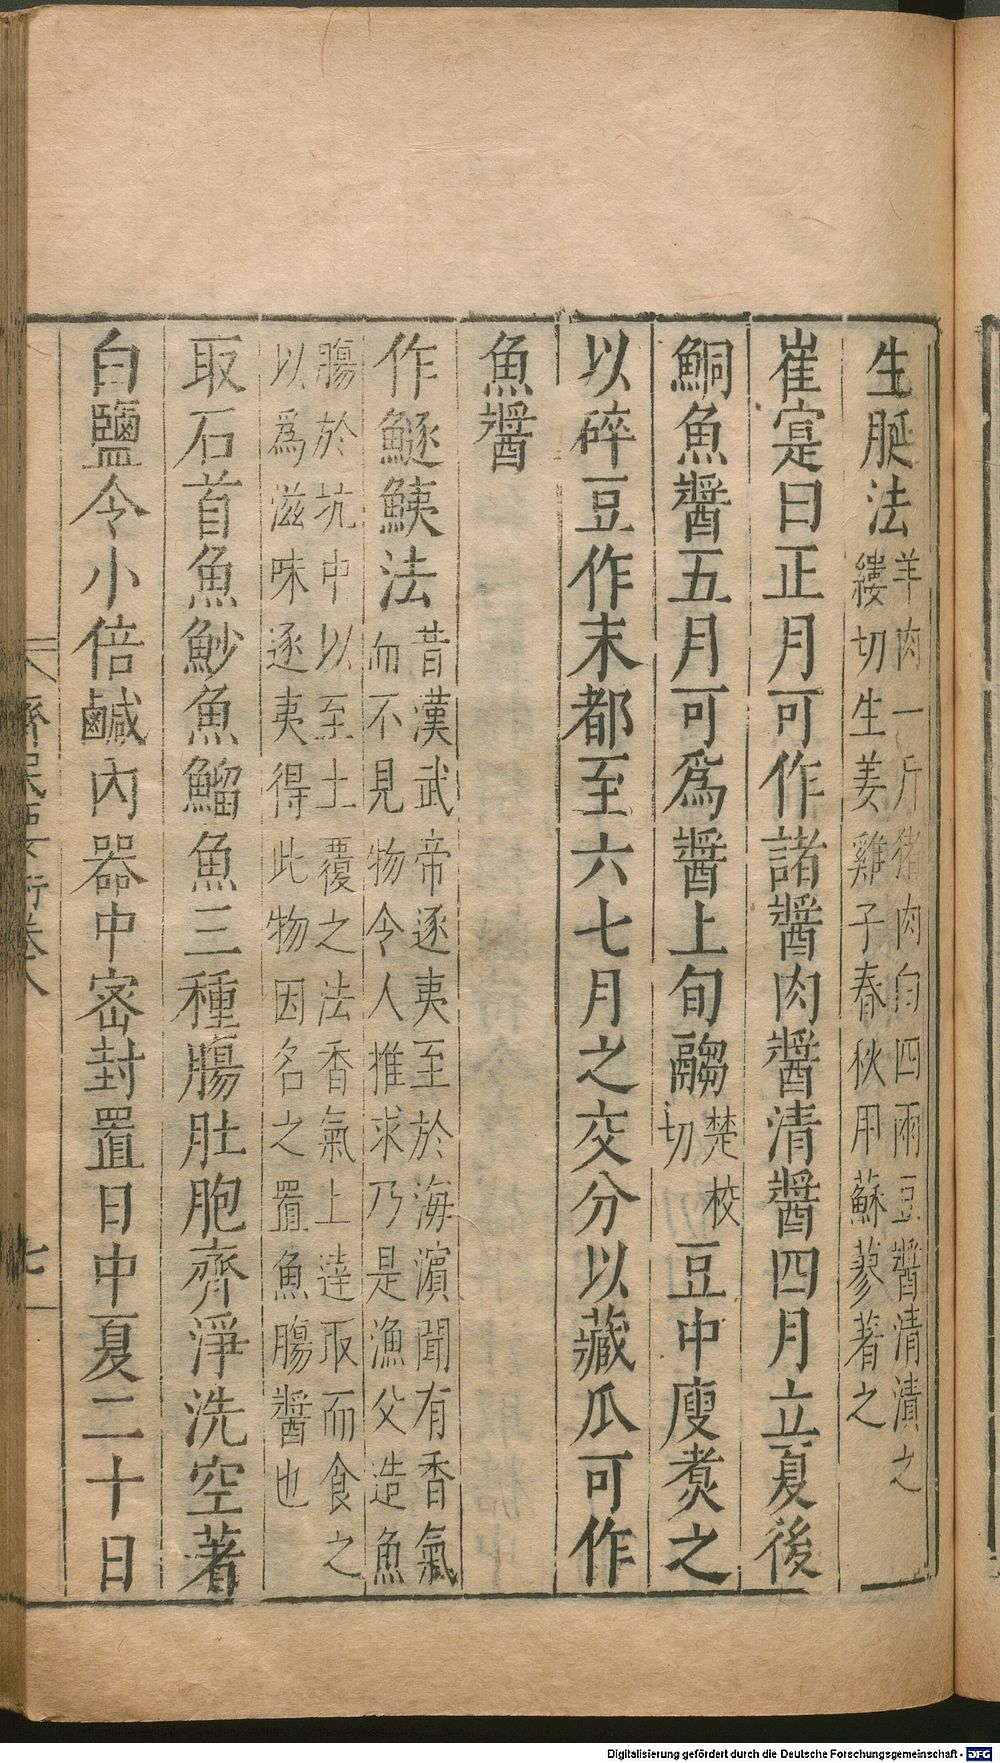 生脠法羊肉一斤猪肉白四兩豆醬清漬之縷切生姜雞子春秋用蘇蓼著之
崔寔曰正月可作諸醬肉醬清醬四月立夏後
鮦魚醬五月可爲醬上旬䵤楚校切豆中廋煑之
以碎豆作末都至六七月之交分以藏瓜可作
魚醬
作鱁鮧法昔漢武帝逐夷至於海濵聞有香氣而不見物令人推求乃是漁父造魚
膓於坑中以至土覆之法香氣上逹取而食之以爲滋味逐夷得此物因名之葢魚膓醬也
取石首魚魦魚鰡魚三種膓肚胞齊淨洗空著
白鹽令小倍鹹內器中宻封置日中夏二十日
齊民要術卷八 七
Digitalisierung gefördert durch die Deutsche Forschungsgemeinschaft - DFG